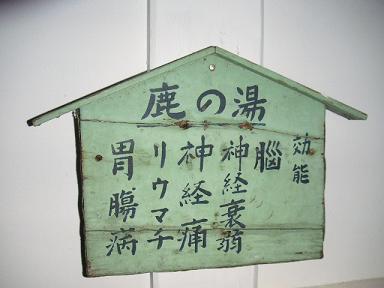 鹿の湯
効能
脳
神経衰弱
神経痛
リウマチ
胃腸病